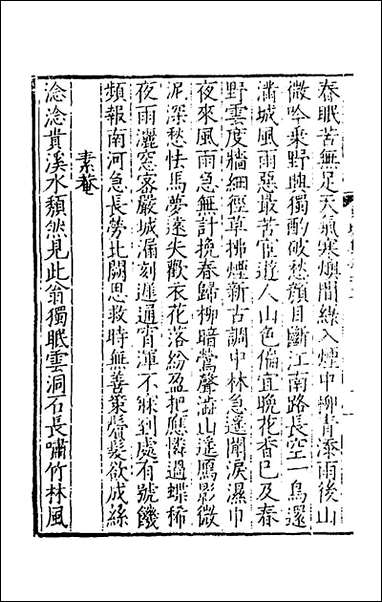 春眠苦無足天氣寒燠間綠入煙中柳青添雨後山
微吟乘野興獨酌破愁顏目斷江南路長空一鳥還
滿城風雨惡最苦宦遊人山色偏宜晚花香已及春
野雲度牆細徑草拂煙新古調中林急遙聞淚濕巾
夜來風雨急無計挽春歸柳暗鶯聲澁山遙鴈影微
泥深愁怯馬夢遠失歡衣花落紛盈把應憐過蝶稀
夜雨灑窓密嚴城漏刻遲通宵渾不寐到處有號饑
頻報南河急長勞北闕思救時無善策鬢髮欲成絲
素菴
淰淰貫溪水頹然見此翁獨眠雲洞石長嘯竹林風